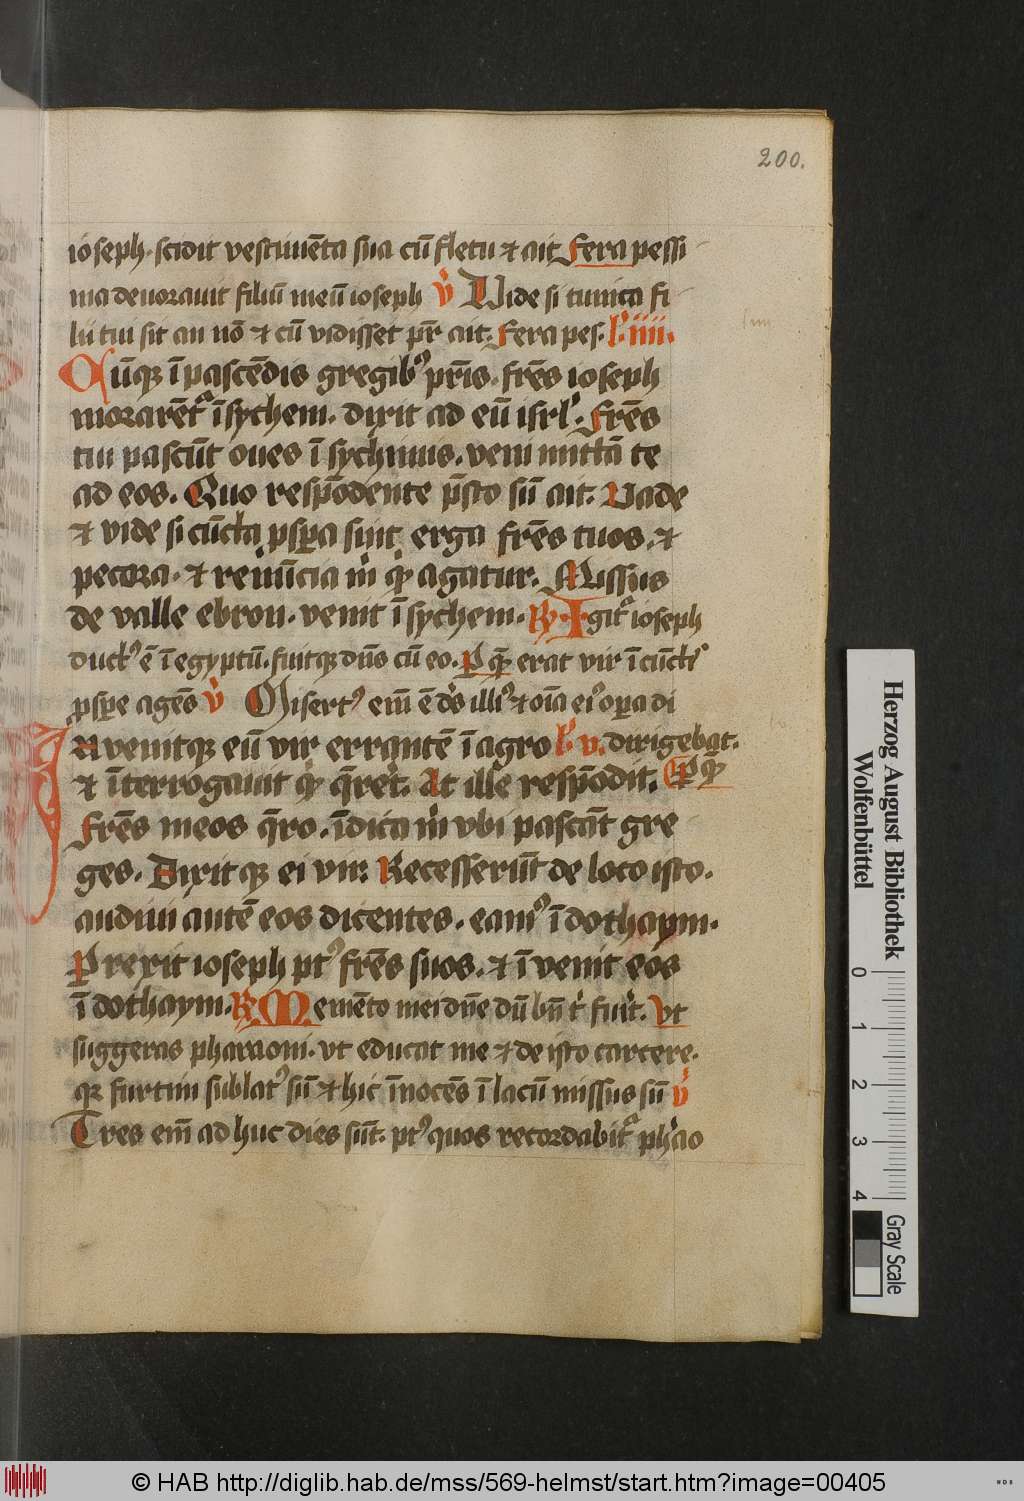 200.
ioseph. scidit vestimēta sua cū fletu ⁊ ait Fera pessi
ma deuorauit filiū meū ioseph v̄ Vide si tunica fi
lii tui sit an nō ⁊ cū vidisset pr̄ ait. Fera pes. l' iiii.
Cūq̄ꝫ ī pascēdis gregibꝰ pr̄is. fr̄es ioseph
morarēt᷑ ī sychem. dixit ad eū isrl'. Fr̄es
tui pascūt oues ī sychimis. veni mittā te
ad eos. Quo respōdente p̄sto sū ait. Vade
⁊ vide si cūcta ꝓsꝑa sint erga fr̄es tuos. ⁊
pecora. ⁊ renūcia m̄ qͥ agatur. Missus
de valle ebron. venit ī sychem. R̸ Igit᷑ ioseph
ductꝰ ē ī egyptū. fuitqꝫ dn̄s cū eo. P q̄ erat vir ī cūctꝭ
ꝓsꝑe agēs v̄ Misertꝰ em̄ ē d's illiꝰ ⁊ oīa eiꝰ oꝑa di
Inuenitqꝫ eū vir errantē ī agro l' v. dirigebat.
⁊ īterrogauit qͥ q̄ret. At ille respōdit. P qͥ
Fr̄es meos q̄ro. īdica m̄ vbi pascāt gre
ges. Dixitqꝫ ei vir. Recesserūt de loco isto.
audiui autē eos dicentes. eamꝰ ī dothaym.
Perrexit ioseph ptꝰ fr̄es suos. ⁊ īvenit eos
ī dothaym. R̸ Memēto mei dn̄e dū bn̄ t' fuīt. Vt
suggeras pharaoni. vt educat me ⁊ de isto carcere.
qꝛ furtim sublatꝰ sū ⁊ hic īnocēs ī lacū missus sū v̄
Tres em̄ adhuc dies sūt. ptꝰ quos recordabit᷑ ph'ao
Herzog August Bibliothek
Wolfenbüttel
0 1 2 3 4
Gray Scale
© HAB http://diglib.hab.de/mss/569-helmst/start.htm?image=00405